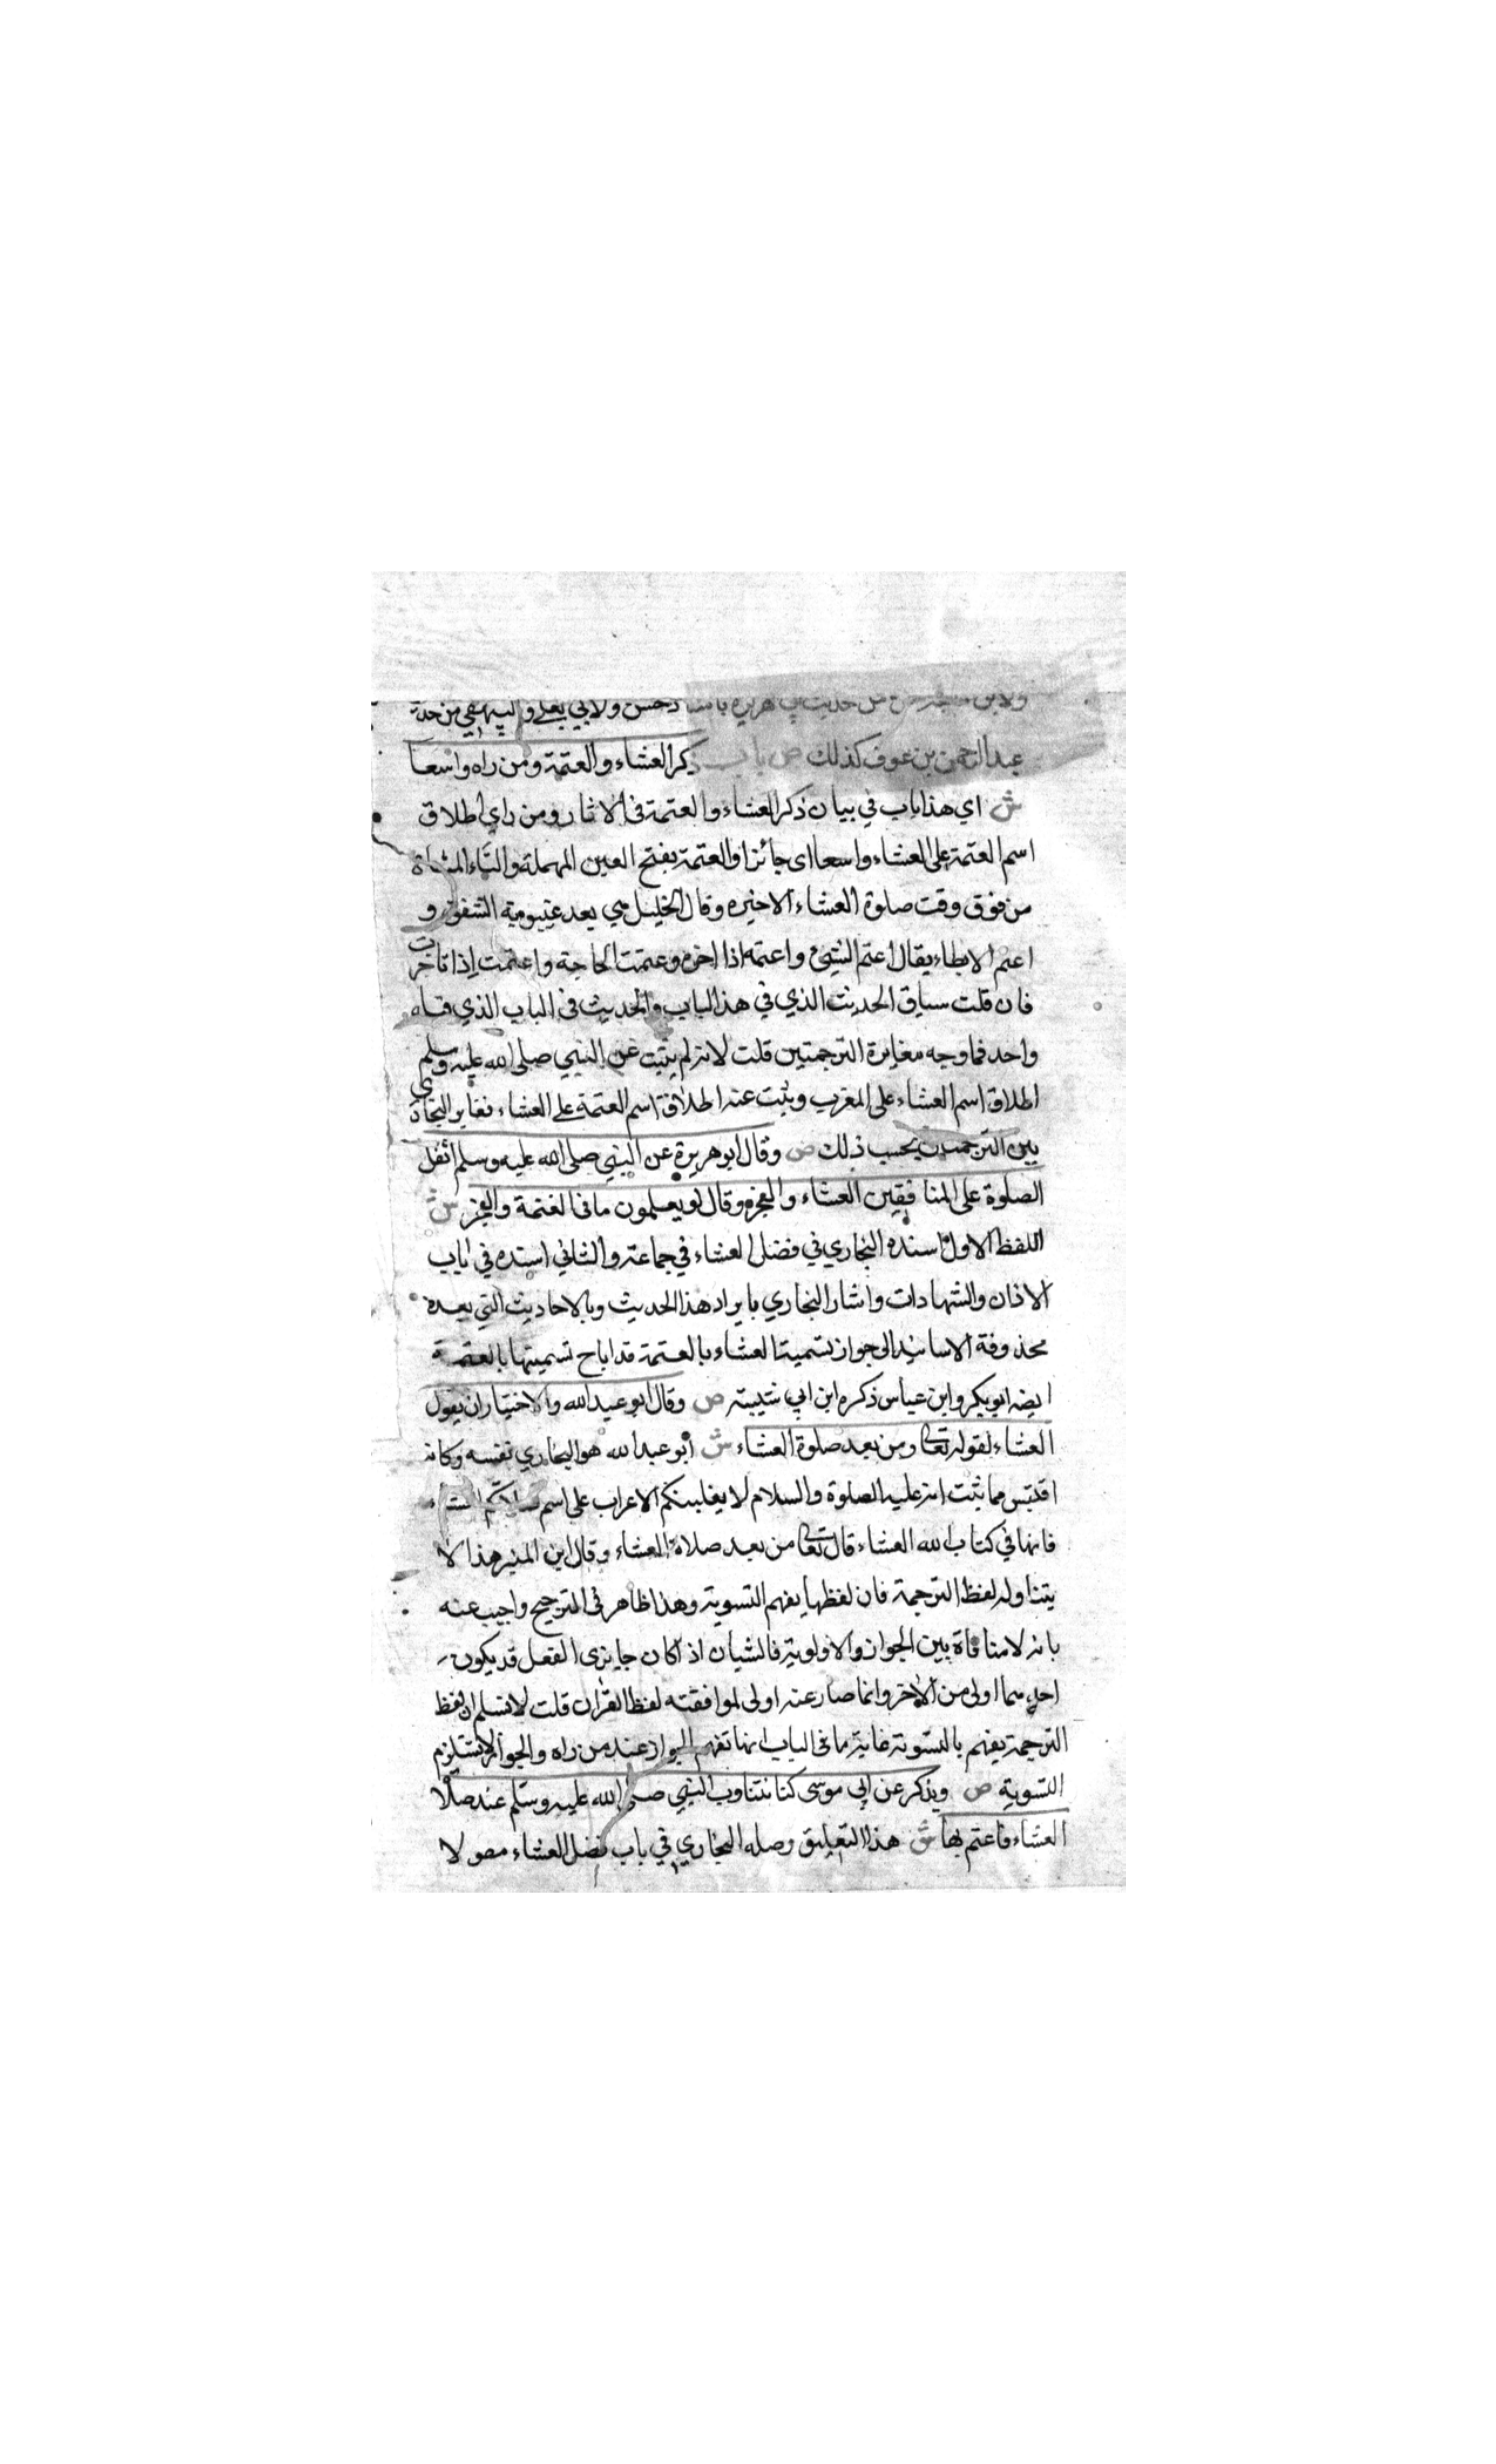 ولابن ماجه من حديث ابي هريرة باسناد حسن ولابي يعلى والبيهقي من حديث
عبد الرحمن بن عوف كذلك ص باب ذكر العشاء والعتمة ومن راه واسعا
ش اي هذا باب في بيان ذكر العشاء والعتمة في الاثار ومن راي اطلاق
اسم العتمة على العشاء واسعا اى جائزا والعتمة بفتح العين المهملة والتاء المثناة
من فوق وقت صلوة العشاء الاخيره وقال الخليل هي بعد غيبوبة الشفق و
اعتم الابطاء يقال اعتم الشيئ واعتمه اذا اخره وعتمت الحاجة واعتمت اذا تاخرت
فان قلت سياق الحديث الذي في هذا الباب والحديث في الباب الذي قبله
واحد فما وجه مغايرة الترجمتين قلت لانه لم يثبت عن النبي صلى الله عليه وسلم
اطلاق اسم العشاء على المغرب وثبت عنه اطلاق اسم العتمة على العشاء فغاير البخاري
بين الترجمتين بحسب ذلك ص وقال ابو هريرة عن النبي صلى الله عليه وسلم اثقل
الصلوة على المنافقين العشاء والفجر وقال لو يعلمون ما في العتمة والفجر ش
اللفظ الاول اسنده البخاري في فضل العشاء في جماعة والثاني اسنده في باب
الاذان والشهادات واشار البخاري بايراد هذا الحديث وبالاحاديث التي بعده
محذوفة الاسانيد الى جواز تسمية العشاء بالعتمة قد اباح تسميتها بالعتمة
ايضا ابو بكر وابن عباس ذكره ابن ابي شيبة ص وقال ابو عبد الله والاختيار ان يقول
العشاء لقوله تعالى ومن بعد صلوة العشاء ش ابو عبد الله هو البخاري نفسه وكانه
اقتبس مما ثبت انه عليه الصلوة والسلام لا يغلبنكم الاعراب على اسم صلاتكم العشاء
فانها في كتاب الله العشاء قال تعالى من بعد صلاة العشاء وقال ابن المنير هذا لا
يتناوله لفظ الترجمة فان لفظها يفهم التسوية وهذا ظاهر في الترجيح واجيب عنه
بانه لا منافاة بين الجواز والاولوية فالشيان اذا كان جايزى الفعل قد يكون
احدهما اولى من الاخر وانما صار عنه اولى لموافقته لفظ القران قلت لا نسلم ان لفظ
الترجمة يفهم بالتسوية غاية ما في الباب انها تفهم الجواز عند من راه والجواز لا يستلزم
التسوية ص ويذكر عن ابي موسى كنا نتناوب النبي صلى الله عليه وسلم عند صلاة
العشاء فاعتم بها ش هذا التعليق وصله البخاري في باب فضل العشاء مصولا